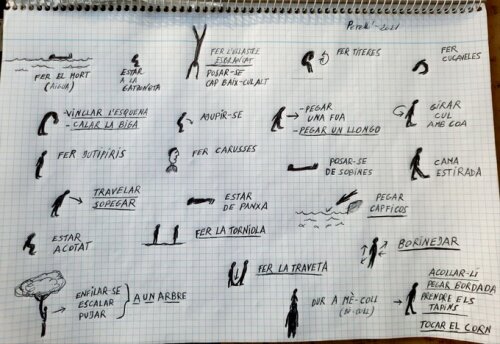 Perelló-2021
FER EL MORT
(AIGUA)
ESTAR
A LA
GATONETA
FER L'ULLASTRE
ESBRANCAT
POSAR-SE
CAP BAIX-CUL ALT
FER TITERES
FER
CUCAVELES
-VINCLAR L'ESQUENA
-CALAR LA BIGA
AJUPIR-SE
-PEGAR
UNA FUA
-PEGAR UN LLONGO
GIRAR
CUL
AMB COA
FER BOTIPIRIS
FER CARUSSES
POSAR-SE
DE SOBINES
CAMA
ESTIRADA
TRAVELAR
SOPEGAR
ESTAR
DE PANXA
PEGAR
CAPFICÓS
ESTAR
ACOTAT
FER LA TORNIOLA
BORINEJAR
FER LA TRAVETA
ENFILAR-SE
ESCALAR
PUJAR
A UN ARBRE
DUR A MÈ-COLL
ACOLLAR-LI
PEGAR BORDADA
PRENDRE ELS
TAPINS
TOCAR EL CORN